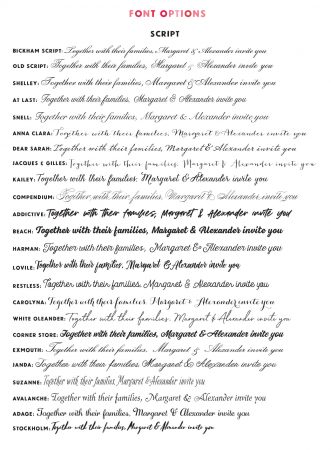 FONT OPTIONS
SCRIPT
BICKHAM SCRIPT: Together with their families, Margaret & Alexander invite you
OLD SCRIPT: Together with their families, Margaret & Alexander invite you
SHELLEY: Together with their families, Margaret & Alexander invite you
AT LAST: Together with their families, Margaret & Alexander invite you
SNELL: Together with their families, Margaret & Alexander invite you
ANNA CLARA: Together with their families, Margaret & Alexander invite you
DEAR SARAH: Together with their families, Margaret & Alexander invite you
JACQUES & GILLES: Together with their families, Margaret & Alexander invite you
KAILEY: Together with their families, Margaret & Alexander invite you
COMPENDIUM: Together with their families, Margaret & Alexander invite you
ADDICTIVE: Together with their families, Margaret & Alexander invite you
REACH: Together with their families, Margaret & Alexander invite you
HARMAN: Together with their families, Margaret & Alexander invite you
LOVILE: Together with their families, Margaret & Alexander invite you
RESTLESS: Together with their families, Margaret & Alexander invite you
CAROLYNA: Together with their families, Margaret & Alexander invite you
WHITE OLEANDER: Together with their families, Margaret & Alexander invite you
CORNER STORE: Together with their families, Margaret & Alexander invite you
EXMOUTH: Together with their families, Margaret & Alexander invite you
JANDA: Together with their families, Margaret & Alexander invite you
SUZANNE: Together with their families, Margaret & Alexander invite you
AVALANCHE: Together with their families, Margaret & Alexander invite you
ADAGE: Together with their families, Margaret & Alexander invite you
STOCKHOLM: Together with their families, Margaret & Alexander invite you